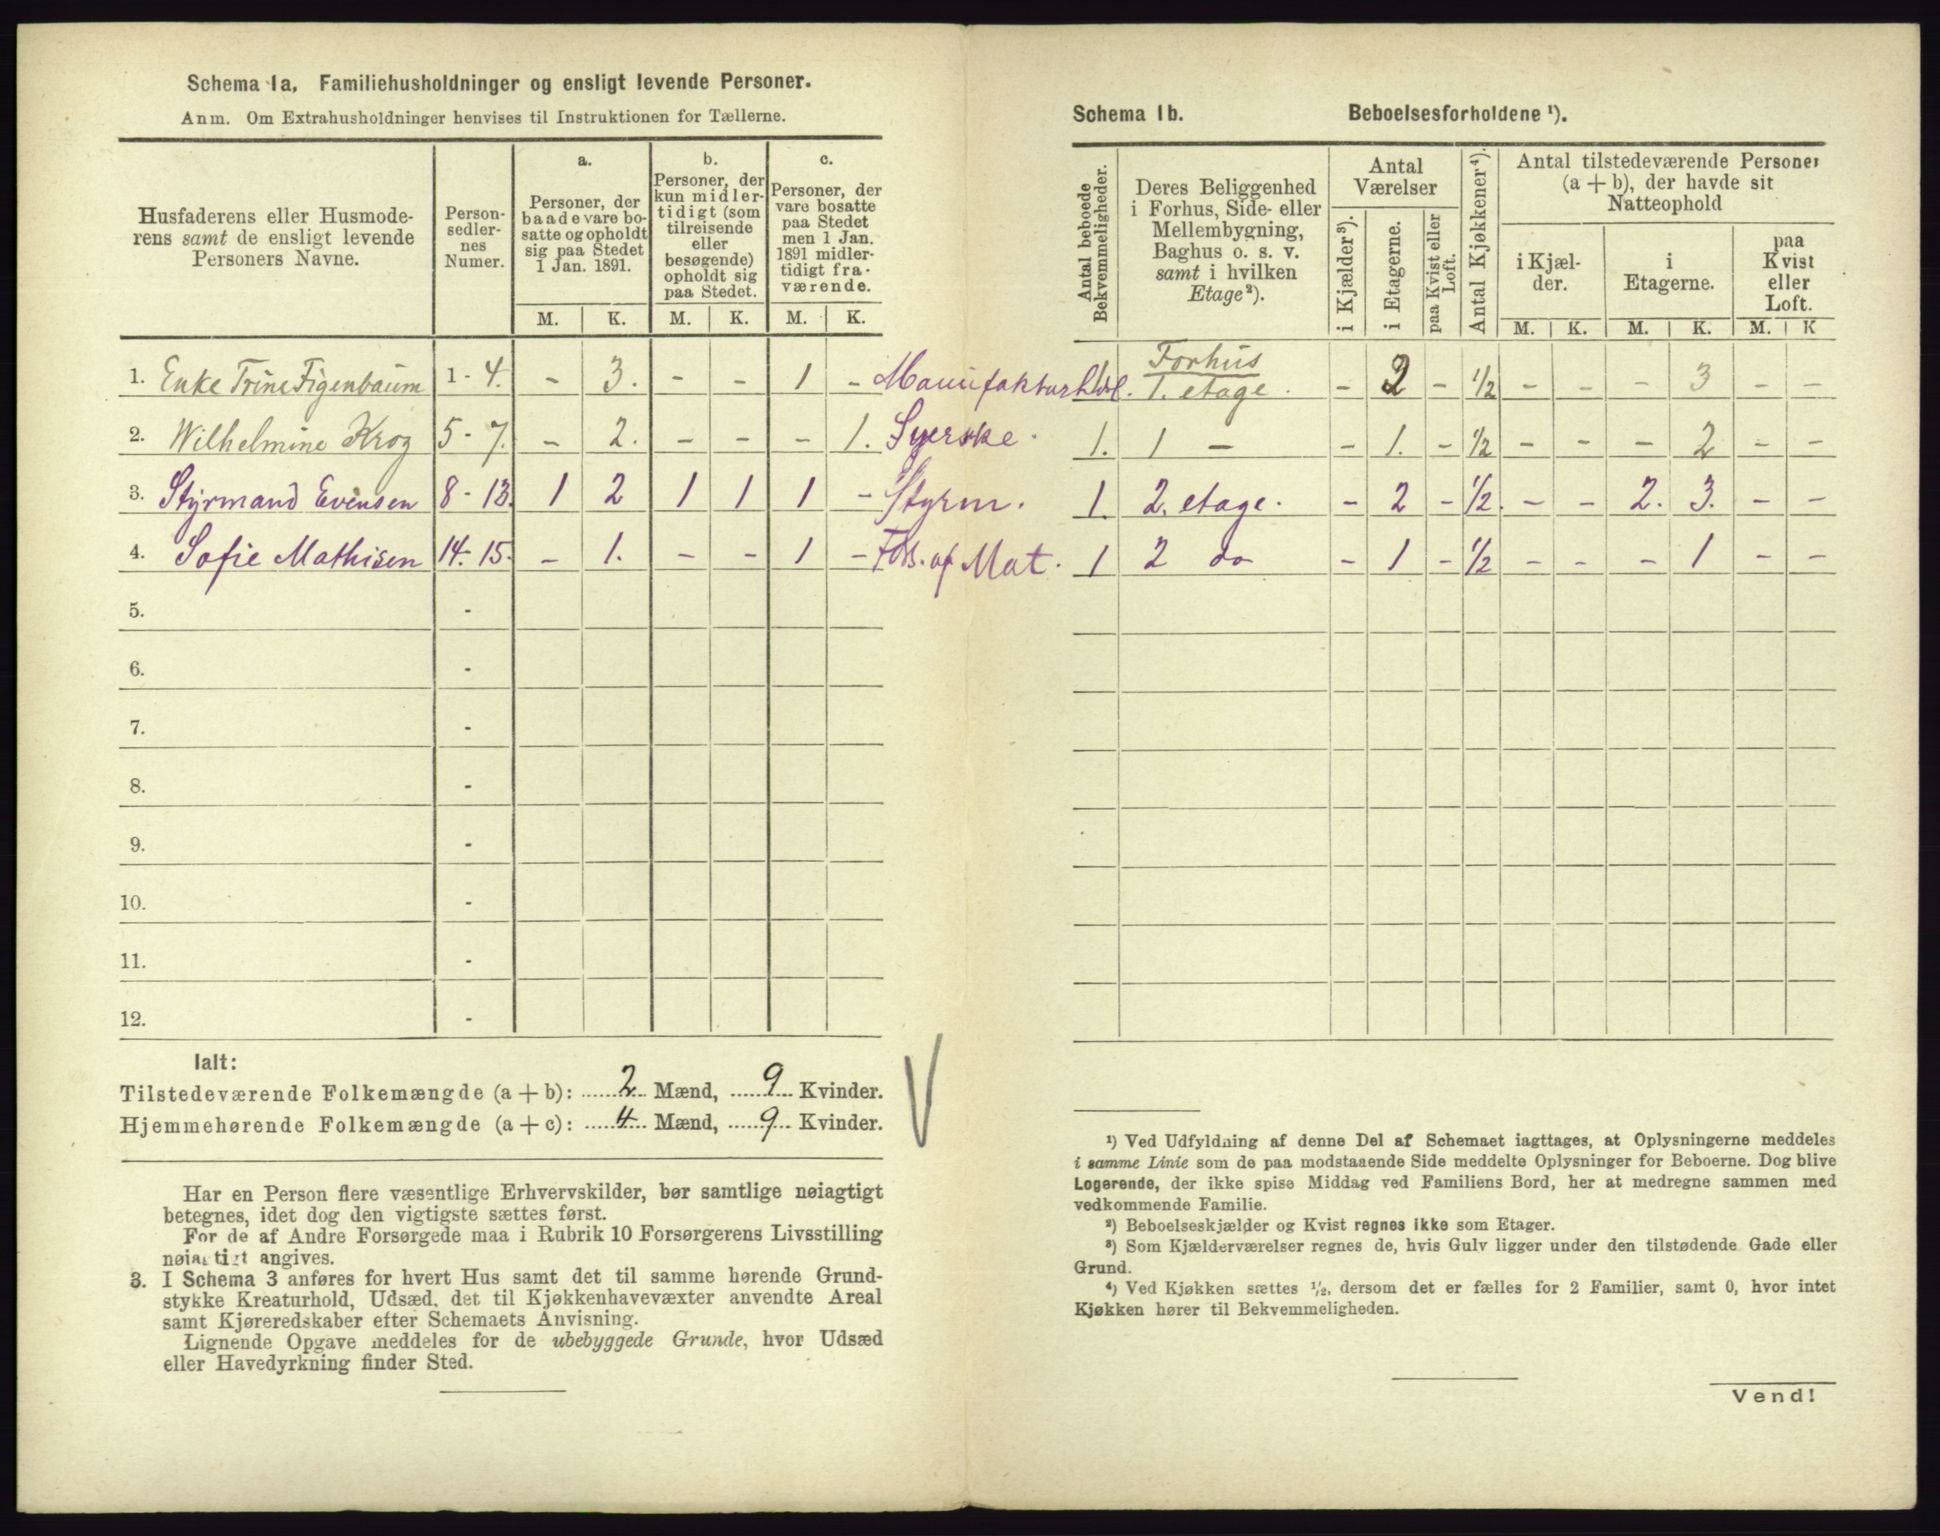 Schema 1a. Familiehusholdninger og ensligt levende Personer.
Anm. Om Extrahusholdninger henvises til Instruktionen for Tællerne.
Husfaderens eller Husmoderens samt de ensligt levende Personers Navne.
Personsedlernes Numer.
a. Personer, der baade vare bosatte og opholdt sig paa Stedet 1 Jan. 1891.
b. Personer, der kun midlertidigt (som tilreisende eller besøgende) opholdt sig paa Stedet.
c. Personer, der vare bosatte paa Stedet men 1 Jan. 1891 midlertidigt fraværende.
M. K. M. K. M. K.
1. Enke Trine Figenbaum 1 - 4. - 3. - - 1 - Manufakturhdl.
2. Wilhelmine Krog 5 - 7. - 2. - - - 1. Syerske.
3. Styrmand Evensen 8 - 13. 1 2 1 1 1 - Styrm.
4. Sofie Mathisen 14 - 15. - 1. - - 1 - Fors. af Mat.
5. -
6. -
7. -
8. -
9. -
10. -
11. -
12. -
Ialt:
Tilstedeværende Folkemængde (a + b): 2 Mænd, 9 Kvinder.
Hjemmehørende Folkemængde (a + c): 4 Mænd, 9 Kvinder.
Har en Person flere væsentlige Erhvervskilder, bør samtlige nøiagtigt
betegnes, idet dog den vigtigste sættes først.
For de af Andre Forsørgede maa i Rubrik 10 Forsørgerens Livsstilling
nøiagtigt angives.
3. I Schema 3 anføres for hvert Hus samt det til samme hørende Grund-
stykke Kreaturhold, Udsæd, det til Kjøkkenhavevæxter anvendte Areal
samt Kjøreredskaber efter Schemaets Anvisning.
Lignende Opgave meddeles for de ubebyggede Grunde, hvor Udsæd
eller Havedyrkning finder Sted.
Schema 1b. Beboelsesforholdene ¹).
Antal beboede Bekvemmeligheder.
Deres Beliggenhed i Forhus, Side- eller Mellembygning, Baghus o. s. v. samt i hvilken Etage²).
Antal Værelser
i Kjælder³). i Etagerne. paa Kvist eller Loft.
Antal Kjøkkener⁴).
Antal tilstedeværende Personer (a + b), der havde sit Natteophold
i Kjælder. i Etagerne. paa Kvist eller Loft.
M. K. M. K. M. K
1. Forhus 1. etage. - 2 - ½ - - - 3 - -
1. 1 - - 1. - ½ - - - 2 - -
1. 2. etage. - 2 - ½. - - 2. 3. - -
1 2 do - 1 - ½ - - - 1 - -
¹) Ved Udfyldning af denne Del af Schemaet iagttages, at Oplysningerne meddeles
i samme Linie som de paa modstaaende Side meddelte Oplysninger for Beboerne. Dog blive
Logerende, der ikke spise Middag ved Familiens Bord, her at medregne sammen med
vedkommende Familie.
²) Beboelseskjælder og Kvist regnes ikke som Etager.
³) Som Kjælderværelser regnes de, hvis Gulv ligger under den tilstødende Gade eller
Grund.
⁴) Ved Kjøkken sættes ½, dersom det er fælles for 2 Familier, samt 0, hvor intet
Kjøkken hører til Bekvemmeligheden.
Vend!